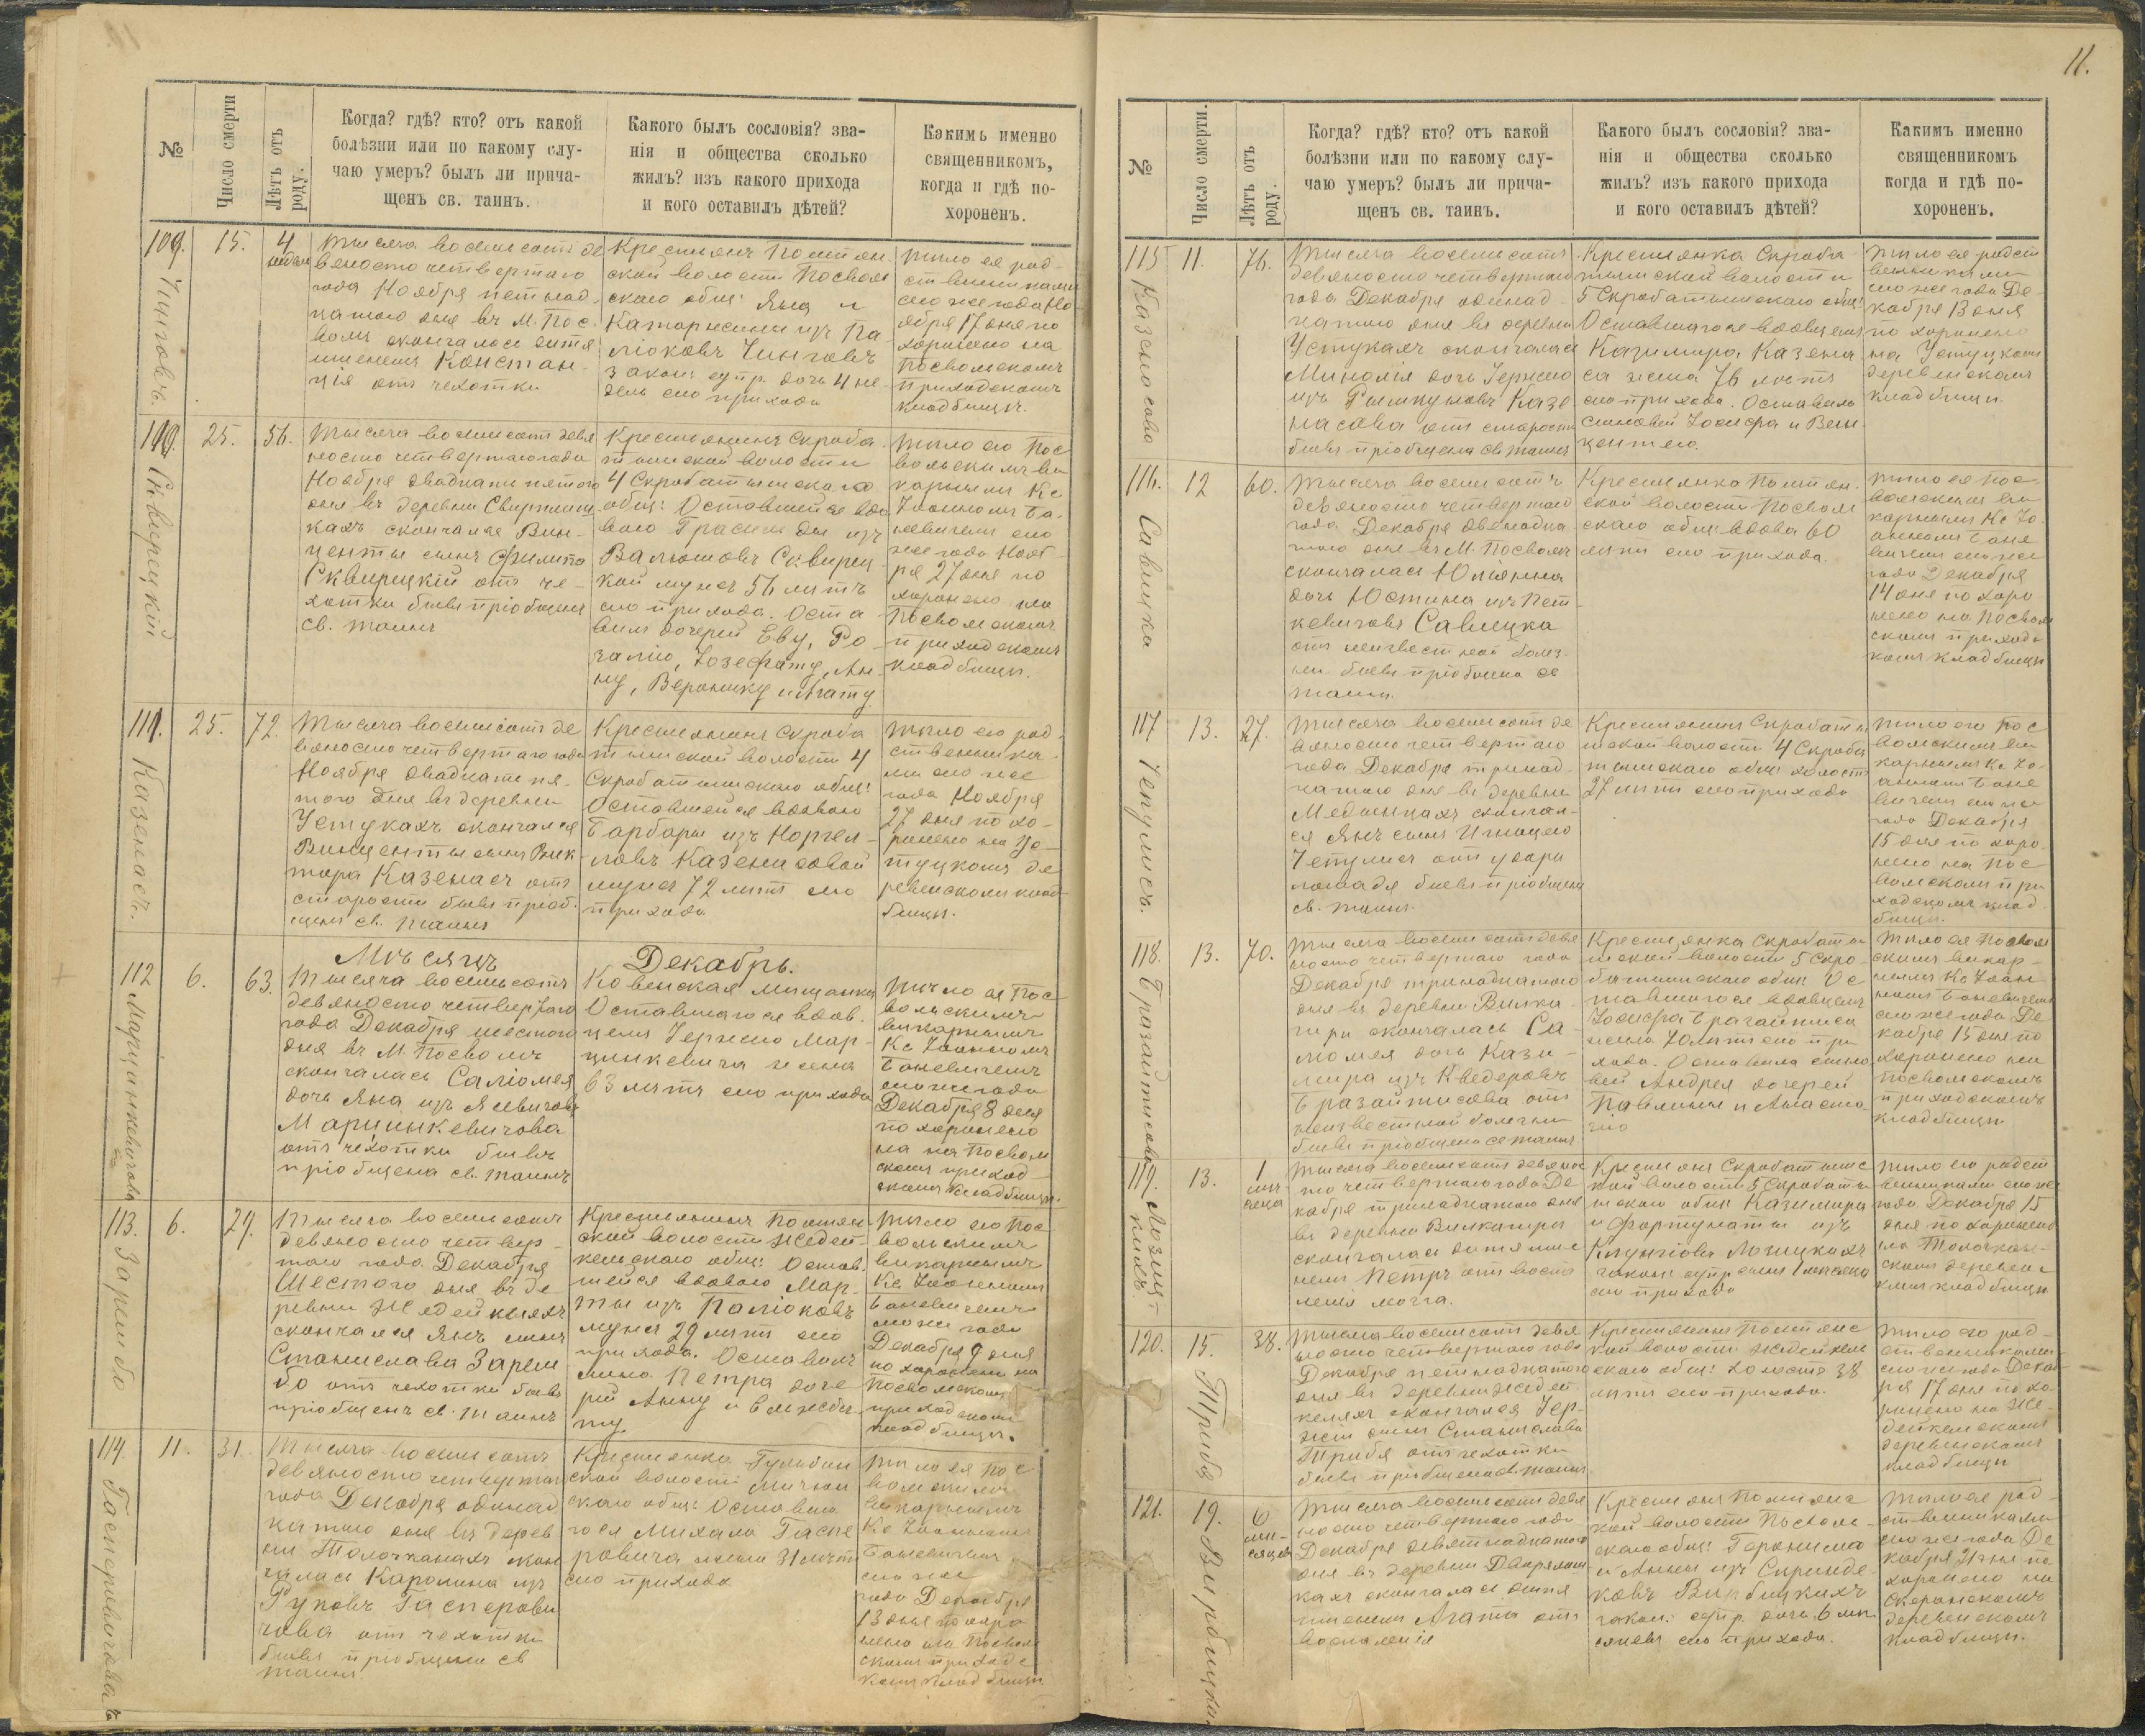 11.
№
Число смерти
Лѣтъ отъ роду.
Когда? гдѣ? кто? отъ какой
болѣзни или по какому слу-
чаю умеръ? былъ ли прича-
щенъ св. таинъ.
Какого былъ сословія? зва-
нія и общества сколько
жилъ? изъ какого прихода
и кого оставилъ дѣтей?
Какимъ именно
священникомъ,
когда и гдѣ по-
хороненъ.
109. 15. 4 недели
Чинговъ.
Тысяча восемьсотъ де
вяносто четвертаго
года Ноября пятнад-
цатого дня въ М. Пос-
воли скончалось дитя
именемъ Констан-
ція отъ чехотки
Крестьянъ Помпян-
ской волости Посволь
скаго общ: Яна и
Катаржины изъ Па
ліоковъ Чинговъ
закон: супр. дочь 4 не-
дель сего прихода
Тѣло ея род-
ственниками
сего же года Но-
ября 17 дня по
хоронено на
Посвольскомъ
приходскомъ
кладбищѣ.
110. 25. 56.
Сквирецкій
Тысяча восемьсотъ девя
носто четвертаго года
Ноября двадцати пятого
дня въ деревни
кахъ скончался Вин-
центы сынъ Филипа
Сквирецкій отъ че-
хотки бывъ пріобщенъ
св. таинъ
Крестьянинъ Скроба-
тишской волости
4 Скробатишскаго
общ: Оставшейся вдо
вою изъ
Валюшовъ Сквирец-
кой мужъ 56 лѣтъ
сего прихода. Оста
вилъ дочерей Еву, Ро-
залію, Іозефату, Ан-
ну, Веронику и Агату
Тѣло его Пос-
вольскимъ ви
карнымъ Кс
Іоанномъ Ба-
невичемъ сего
же года Нояб-
ря 27 дня по
хоронено на
Посвольскомъ
приходскомъ
кладбищѣ.
111. 25. 72.
Казенасъ.
Тысяча восемьсотъ де
вяносто четвертаго года
Ноября двадцати пя-
того дня въ деревни
Устукахъ скончался
Винценты сынъ Вик
тора Казенасъ отъ
старости бывъ пріоб-
щенъ св. таинъ
Крестьянинъ Скроба
тишской волости 4
Скробатишскаго общ:
Оставшейся вдовою
Барбары изъ Норгел-
ловъ Казенасовой
мужъ 72 лѣтъ сего
прихода
Тѣло его род-
ственника-
ми сего же
года Ноября
27 дня по хо-
ронено на Ус-
туцкомъ де
ревенскомъ клад-
бищѣ.
Мѣсяцъ Декабрь.
112 6. 63.
Марцинкевичова
Тысяча восемьсотъ
девяносто четвертаго
года Декабря шестого
дня въ М. Посволѣ
скончалась Саліомея
дочь Яна изъ Ясевичовъ
Марцинкевичова
отъ чехотки бывъ
пріобщена св. таинъ
Ковенская мѣщанка
Оставшагося вдов-
цемъ Іержего Мар-
цинкевича жена
63 лѣтъ сего прихода
Тѣло ея Пос
вольскимъ
викарнымъ
Кс Іоанномъ
Баневичемъ
сего же года
Декабря 8 дня
по хоронено
на на Посволь
скомъ приход-
скомъ кладбищѣ.
113. 6. 29.
Заремба
Тысяча восемьсотъ
девяносто четвер-
таго года Декабря
Шестого дня въ де
ревни Жадейкеляхъ
скончался Янъ сынъ
Станислава Зарем
бо отъ чехотки бывъ
пріобщенъ св. таинъ
Крестьянинъ Помпян-
ской волости Жедей-
кельскаго общ: Остав-
шейся вдовою Мар-
ты изъ Паліоковъ
мужъ 29 лѣтъ сего
прихода. Оставилъ
сына Петра доче
рей Анну и Ельжбе-
ту
Тѣло его Пос-
вольскимъ
викарнымъ
Кс Іоанномъ
Баневичемъ
сего же года
Декабря 9 дня
по хоронено на
Посвольскомъ
приходскомъ
кладбищѣ.
114 11. 31.
Гасперовичова
Тысяча восемьсотъ
девяносто четвертаго
года Декабря одинад
цатого дня въ дерев
ни Толочканахъ скон
чалась Каролина изъ
Гасперови
чова отъ чехотки
бывъ пріобщена св
таинъ
Крестьянка
ской волости
скаго общ: Оставша
гося Михала Гаспе
ровича жена 31 лѣтъ
сего прихода
Тѣло ея Пос
вольскимъ
викарнымъ
Кс Іоанномъ
Баневичемъ
сего же
года Декабря
13 дня по хоро
нено на Посволь
скомъ приходс
комъ кладбищѣ
№
Число смерти.
Лѣтъ отъ роду.
Когда? гдѣ? кто? отъ какой
болѣзни или по какому слу-
чаю умеръ? былъ ли прича-
щенъ св. таинъ.
Какого былъ сословія? зва-
нія и общества сколько
жилъ? изъ какого прихода
и кого оставилъ дѣтей?
Какимъ именно
священникомъ
когда и гдѣ по-
хороненъ.
115 11. 76.
Казенасова
Тысяча восемьсотъ
девяносто четвертаго
года Декабря одинад-
цатого дня въ деревни
Устукахъ скончалась
дочь Іержего
изъ Казе
насова отъ старости
бывъ пріобщена св таинъ
Крестьянка Скроба-
тишской волости
5 Скробатишскаго общ:
Оставшагося вдовцемъ
Казимира Казена
са жена 76 лѣтъ
сего прихода. Оставила
сыновей Іосифа и Вин-
центего.
Тѣло ея родст
венниками
сего же года Де-
кабря 13 дня
по хоронено
на Устуцкомъ
деревенскомъ
кладбищѣ
116. 12 60.
Савицка
Тысяча восемьсотъ
девяносто четвертаго
года Декабря двенадца
того дня въ М. Посволѣ
скончалась Юліянна
дочь Юстина изъ Пет-
кевичовъ Савицка
отъ неизвестной болез-
ни бывъ пріобщена св
таинъ.
Крестьянка Помпян-
ской волости Посволь
скаго общ: вдова 60
лѣтъ сего прихода.
Тѣло ея Пос-
вольскимъ ви
карнымъ Кс Іо-
анномъ Бане
вичемъ сего же
года Декабря
14 дня по хоро
нено на Посволь
скомъ приходс
комъ кладбищѣ
117 13. 27.
Чепулисъ.
Тысяча восемьсотъ де
вяносто четвертаго
года Декабря тринад-
цатого дня въ деревни
скончал-
ся Янъ сынъ Игнацего
Чепулисъ отъ удара
лошадя бывъ пріобщенъ
св. таинъ.
Крестьянинъ Скробати
шской волости 4 Скроба
тишскаго общ: холостъ
27 лѣтъ сего прихода
Тѣло его Пос
вольскимъ ви
карнымъ Кс Іо-
анномъ Бане
вичемъ сего же
года Декабря
15 дня по хоро-
нено на Пос
вольскомъ при
ходскомъ клад-
бищѣ.
118. 13. 70.
Бразайтисова
Тысяча восемьсотъ девя
носто четвертаго года
Декабря тринадцатого
дня въ деревни Вилка-
гири скончалась Са-
ломея дочь Кази-
мира изъ Кведеровъ
Бразайтисова отъ
неизвестной болезни
бывъ пріобщена св таинъ.
Крестьянка Скробати
шской волости 5 Скро-
батишскаго общ: Ос-
тавшагося вдовцемъ
Іосифа Бразайтиса
жена 70 лѣтъ сего при
хода. Оставила сыно
вей Андрея дочерей
Павлину и Анаста-
зію
Тѣло ея Посволь
скимъ викар-
нымъ Кс Іоан-
номъ Баневичемъ
сего же года Де
кабря 15 дня по
хоронено на
Посвольскомъ
приходскомъ
кладбищѣ
119. 13. 1 мѣсяца
Лозиц-
кихъ
Тысяча восемьсотъ девянос
то четвертаго года Де
кабря тринадцатого дня
въ деревни Вилкагири
скончалась дитя име
немъ Петръ отъ воспа
ленія мозга.
Крестьянъ Скробатишс
кой волости 5 Скробати
шскаго общ: Казимира
и Фортунаты изъ
Лозицкихъ
закон: супр. сынъ 1 мѣсяца
сего прихода
Тѣло его родст
венниками сего же
года Декабря 15
дня по хоронено
на Толочкан-
скомъ деревенс
комъ кладбищѣ
120. 15. 38.
Триба
Тысяча восемьсотъ девя
носто четвертаго года
Декабря пятнадцатого
дня въ деревни Жедей-
келяхъ скончался Іер-
жій сынъ Станислава
Триба отъ чехотки
бывъ пріобщенъ св. таинъ
Крестьянинъ Помпянс
кой волости Жедейкель
скаго общ: холостъ 38
лѣтъ сего прихода.
Тѣло его род-
ственниками
сего же года Декаб
ря 17 дня по хо-
ронено на Же-
дейкельскомъ
деревенскомъ
кладбищѣ
121. 19. 6 мѣ-
сяцевъ
Вирбицка.
Тысяча восемьсотъ девя
носто четвертаго года
Декабря девятнадцатого
дня въ деревни
кахъ скончалась дитя
именемъ Агата отъ
воспаленія
Крестьянъ Помпянс
кой волости Посволь-
скаго общ: Геронима
и Анны изъ
ковъ Вирбицкихъ
закон: супр. дочь 6 мѣ-
сяцевъ сего прихода.
Тѣло ея род-
ственниками
сего же года Де
кабря 21 дня по
хоронено на
деревенскомъ
кладбищѣ.